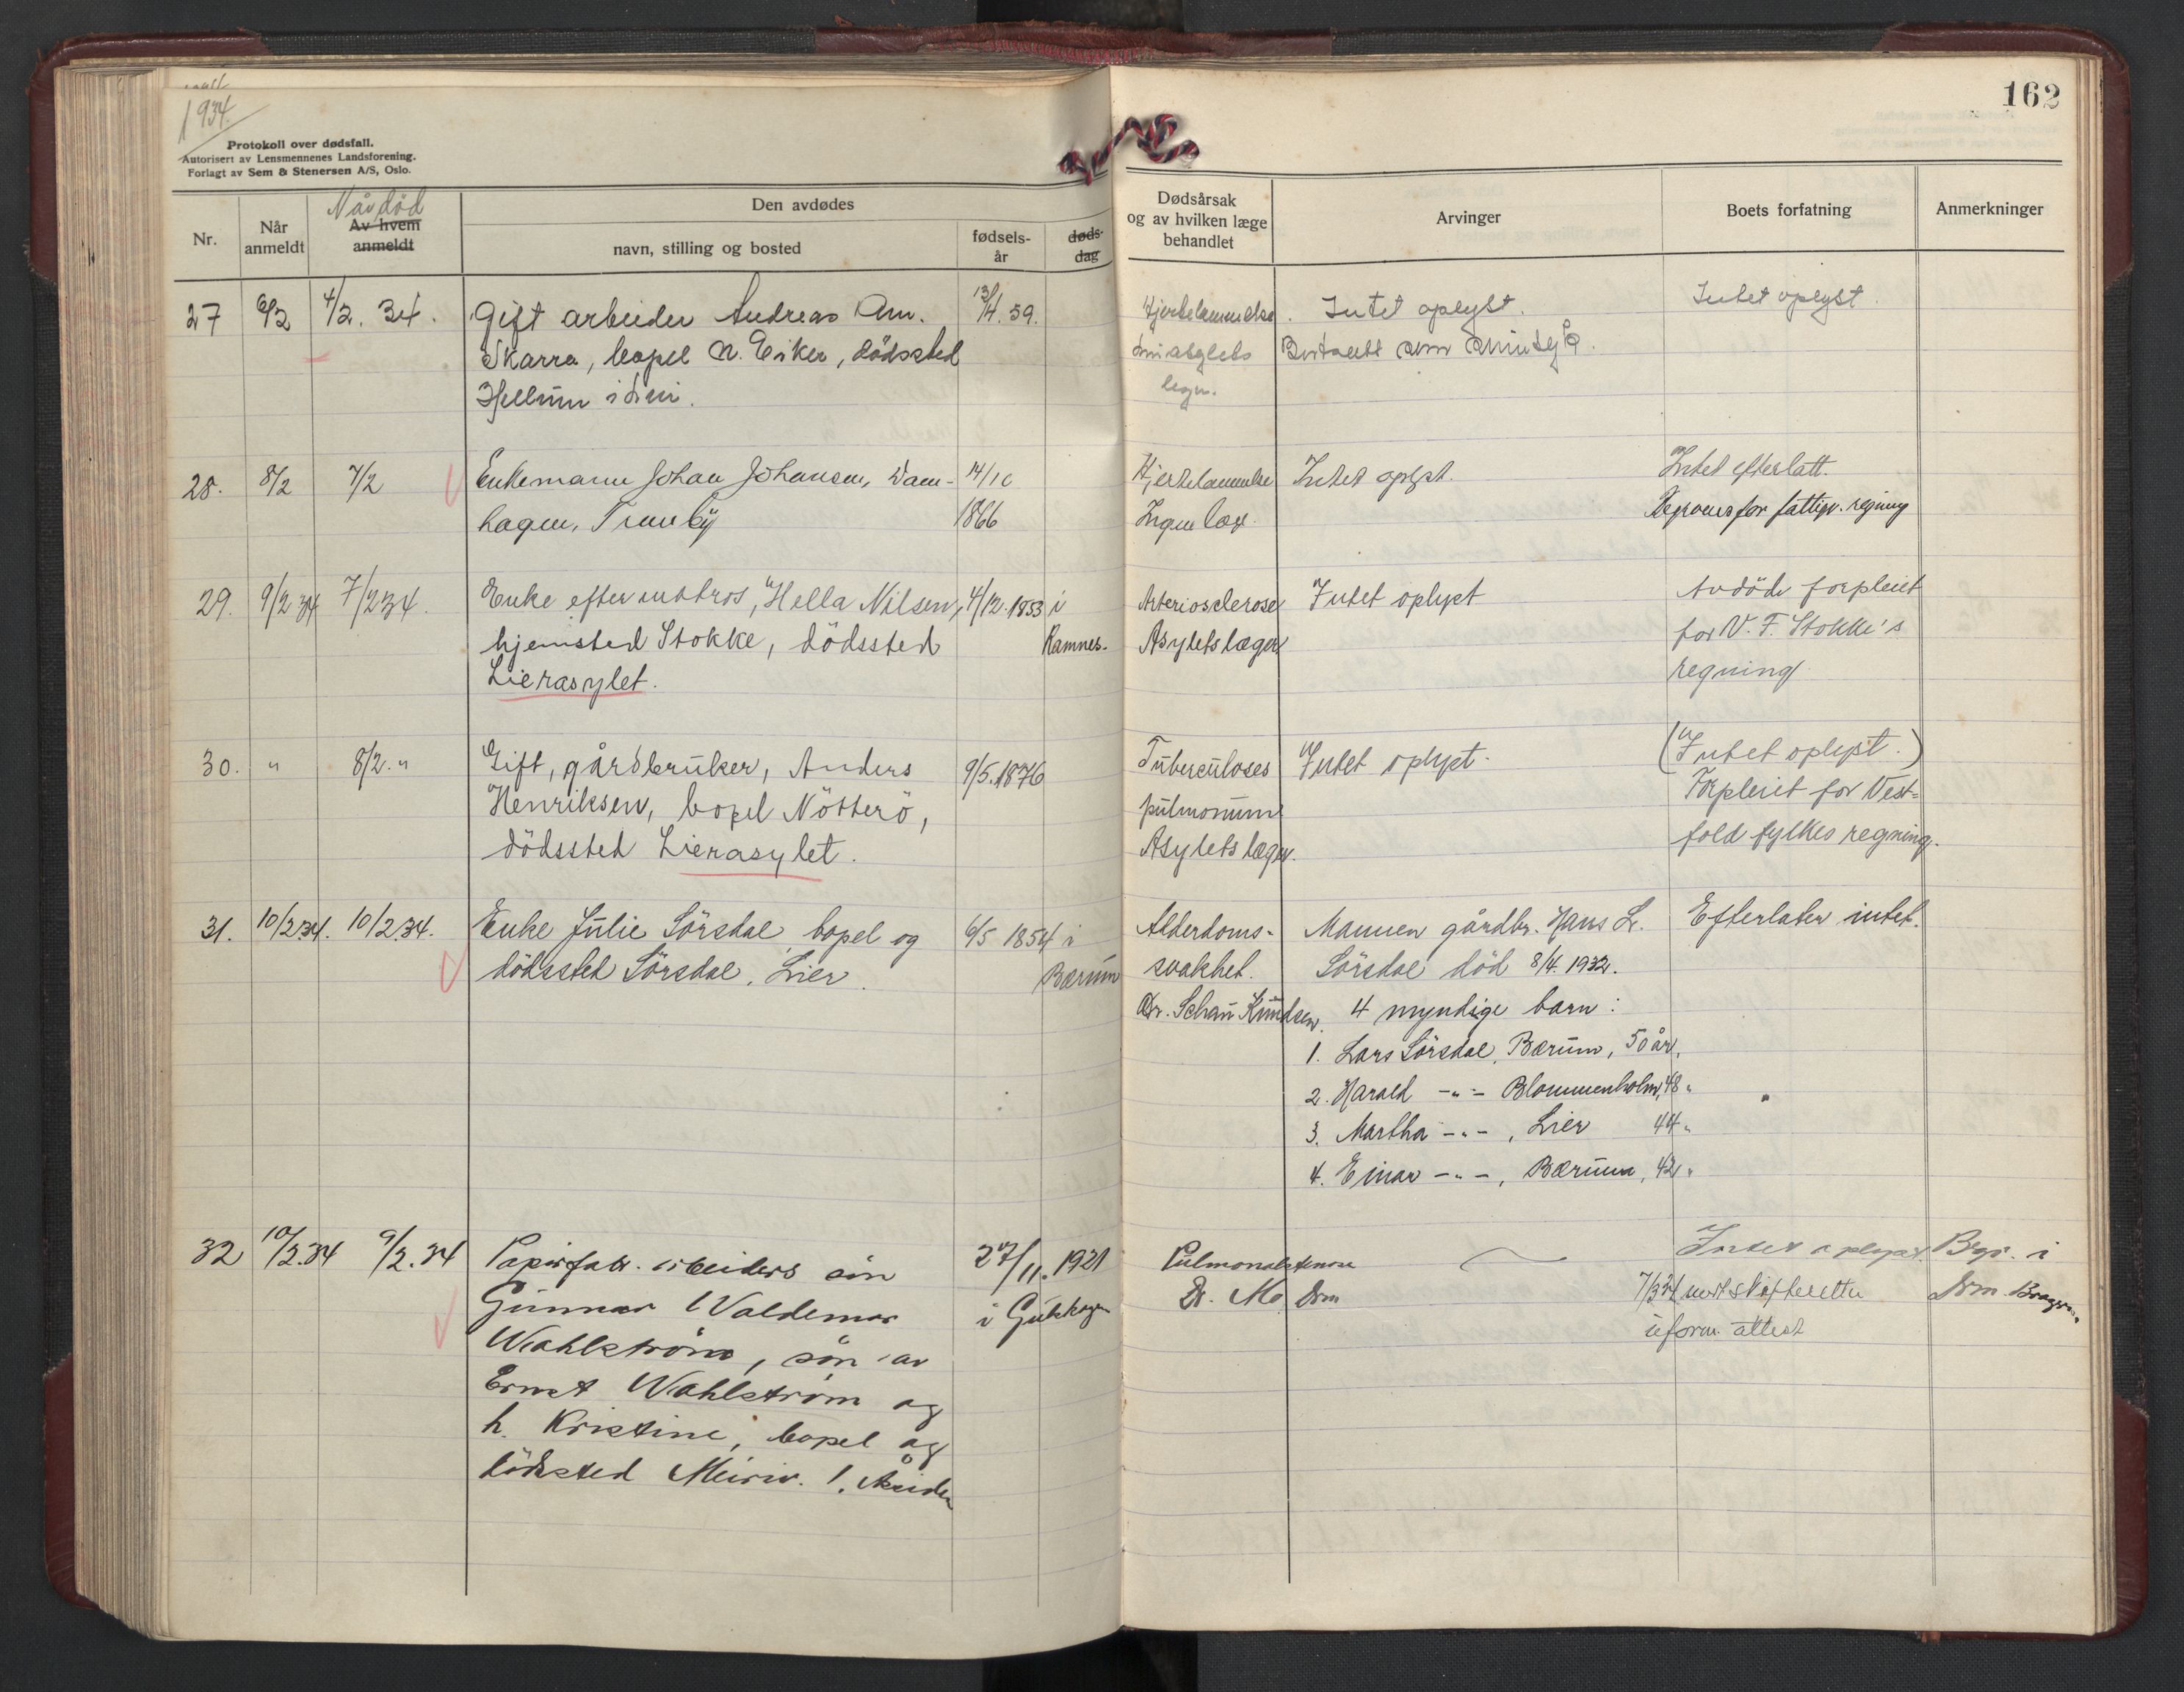 1934.
162
Protokoll over dødsfall.
Autorisert av Lensmennenes Landsforening.
Forlagt av Sem & Stenersen A/S, Oslo.
Nr.
Når anmeldt
Når död
Av hvem anmeldt
Den avdødes
navn, stilling og bosted
fødsels-år
døds-dag
Dødsårsak
og av hvilken læge
behandlet
Arvinger
Boets forfatning
Anmerkninger
27 6/2 4/2. 34. Gift arbeider Andreas Am. 13/4. 59. Intet oplyst. Intet oplyst.
Skarra, bopel N. Eiker, dödssted
asylets
Hellum i Lier.
28. 8/2 7/2 Enkemann Johan Johansen, Dam- 14/10 Hjertelammelse Intet oplyst. Intet efterlatt.
hagen, Tranby 1866 Ingen læge. for fattigv. regning
29. 9/2 34 7/2 34. Enke efter matros, Hella Nilsen, 4/12. 1853 i Arteriosclerose Intet oplyst Avdöde forpleiet
hjemsted Stokke, dödssted Ramnes. Asylets læger for V. F. Stokke's
Lierasylet. regning
30. " 8/2. " Gift, gårdbruker, Anders 9/5. 1876 Tuberculoses Intet oplyst. (Intet oplyst.)
Henriksen, bopel Nötterö, pulmonum Forpleiet for Vest=
dödssted Lierasylet. Asylets læger. fold fylkes regning.
31. 10/2 34. 10/2 34. Enke Julie Sörsdal bopel og 6/5 1854 i Alderdoms- Mannen gårdbr. Hans L. Efterlater intet.
dödssted Sörsdal, Lier. Bærum svakhet. Sörsdal död 8/4. 1932.
Dr. Schau Knudsen. 4 myndige barn:
1. Lars Sörsdal, Bærum, 50 år,
2. Harald -"- Blommenholm, 48 "
3. Martha -"-, Lier 44 "
4. Einar -"-, Bærum, 42 "
32 10/2.34 9/2.34 Papirfabr. arbeiders sön 27/11. 1921 Pulmonalstenose Intet oplyst. i
Gunnar Waldemar i Dr. Mo Drm 7/3 34 skifteretten Drm.
Wahlström, sön av attest
Ernst Wahlström og
h. Kristine, bopel og
dödssted